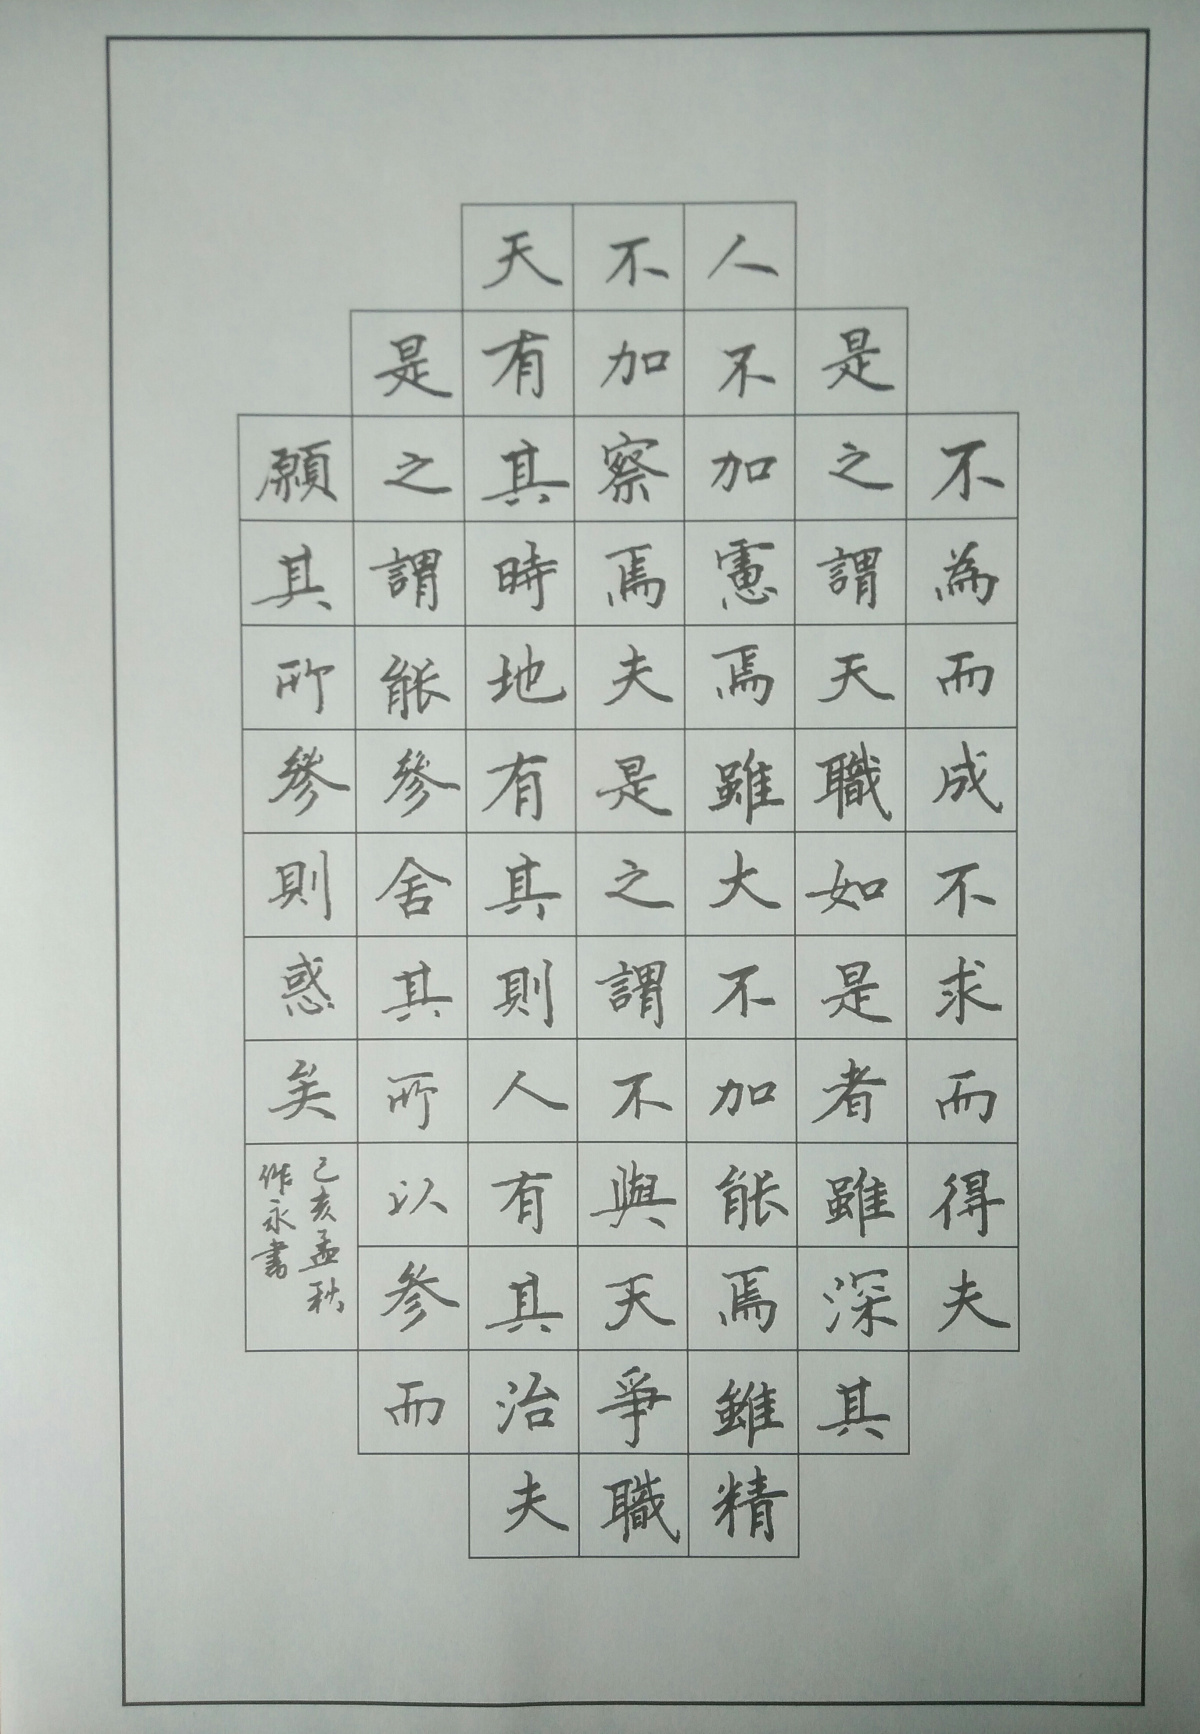 不為而成不求而得夫
是之謂天職如是者雖深其
人不加慮焉雖大不加能焉雖精
不加察焉夫是之謂不與天爭職
天有其時地有其則人有其治夫
是之謂能參舍其所以參而
願其所參則惑矣
己亥孟秋
作永書